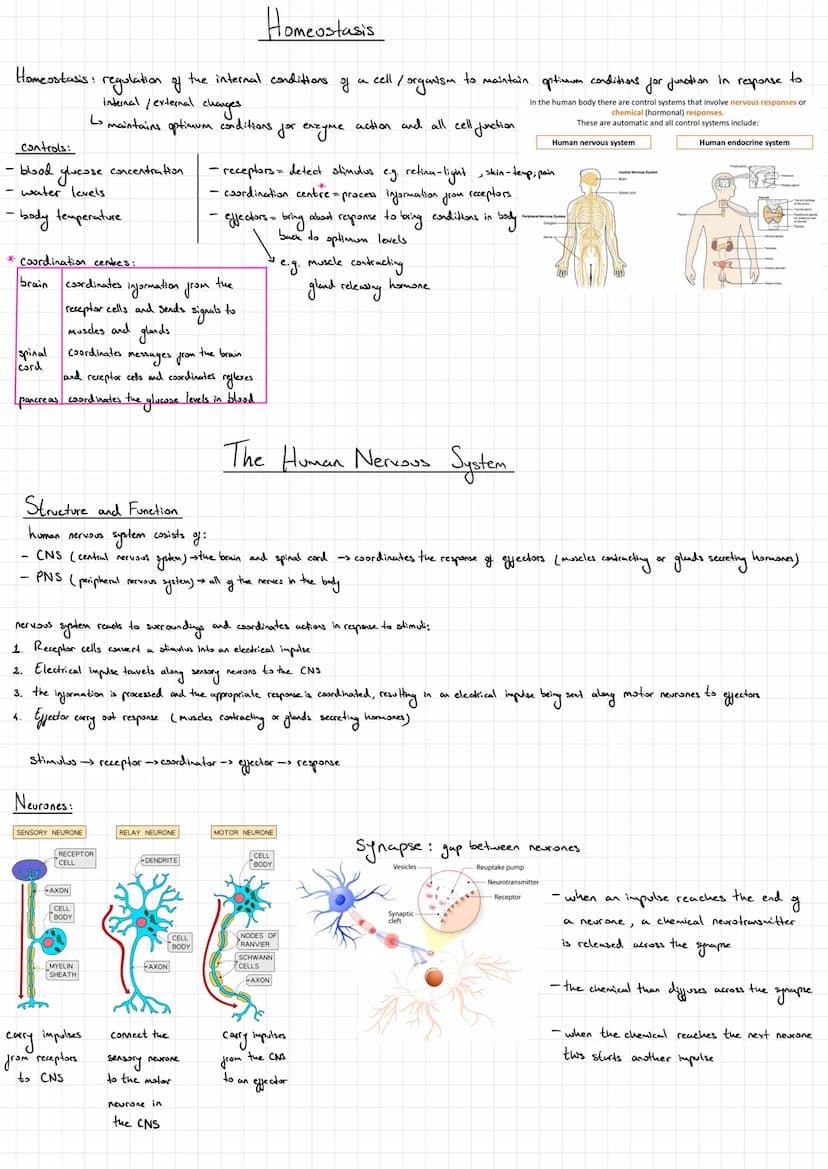 Homeostasis
Homeostasis: regulation of the internal conditions of a cell / organism to maintain optimum conditions for function in response to
internal / external changes
↳ maintains optimum conditions for enzyme action and all cell function
In the human body there are control systems that involve nervous responses or
chemical (hormonal) responses.
These are automatic and all control systems include:
Human nervous system
Human endocrine system
Central Nervous System
Brain
Spinal cord
Peripheral Nervous System
Ganglion
Nerve
controls:
- blood glucose concentration
- water levels
- body temperature
- receptors = detect stimulus e.g. retina-light, skin-temp, pain
- coordination centre* = process information from receptors
- effectors = bring about response to bring conditions in body
back to optimum levels
e.g. muscle contracting
gland releasing hormone
* coordination centres:
brain
coordinates information from the
receptor cells and sends signals to
muscles and glands
spinal
cord
coordinates messages from the brain
and receptor cells and coordinates reflexes
pancreas
coordinates the glucose levels in blood
The Human Nervous System
Structure and Function
human nervous system cosists of:
- CNS (central nervous system) → the brain and spinal cord → coordinates the response of effectors (muscles contracting or glands secreting hormones)
- PNS (peripheral nervous system) → all of the nerves in the body
nervous system reacts to surroundings and coordinates actions in response to stimuli:
1. Receptor cells convert a stimulus into an electrical impulse
2. Electrical impulse travels along sensory neurons to the CNS
3. the information is processed and the appropriate response is coordinated, resulting in an electrical impulse being sent along motor neurones to effectors
4. Effector carry out response (muscles contracting or glands secreting hormones)
stimulus → receptor → coordinator → effector → response
Neurones:
SENSORY NEURONE
RECEPTOR
CELL
AXON
CELL
BODY
MYELIN
SHEATH
carry impulses
from receptors
to CNS
RELAY NEURONE
DENDRITE
CELL
BODY
AXON
connect the
sensory neurone
to the motor
neurone in
the CNS
MOTOR NEURONE
CELL
BODY
NODES OF
RANVIER
SCHWANN
CELLS
AXON
carry impulses
from the CNS
to an effector
Synapse: gap between neurones
Vesicles
Reuptake pump
Neurotransmitter
Receptor
Synaptic
cleft
- when an impulse reaches the end of
a neurone, a chemical neurotransmitter
is released across the synapse
- the chemical than diffuses across the synapse
- when the chemical reaches the next neurone
this starts another impulse